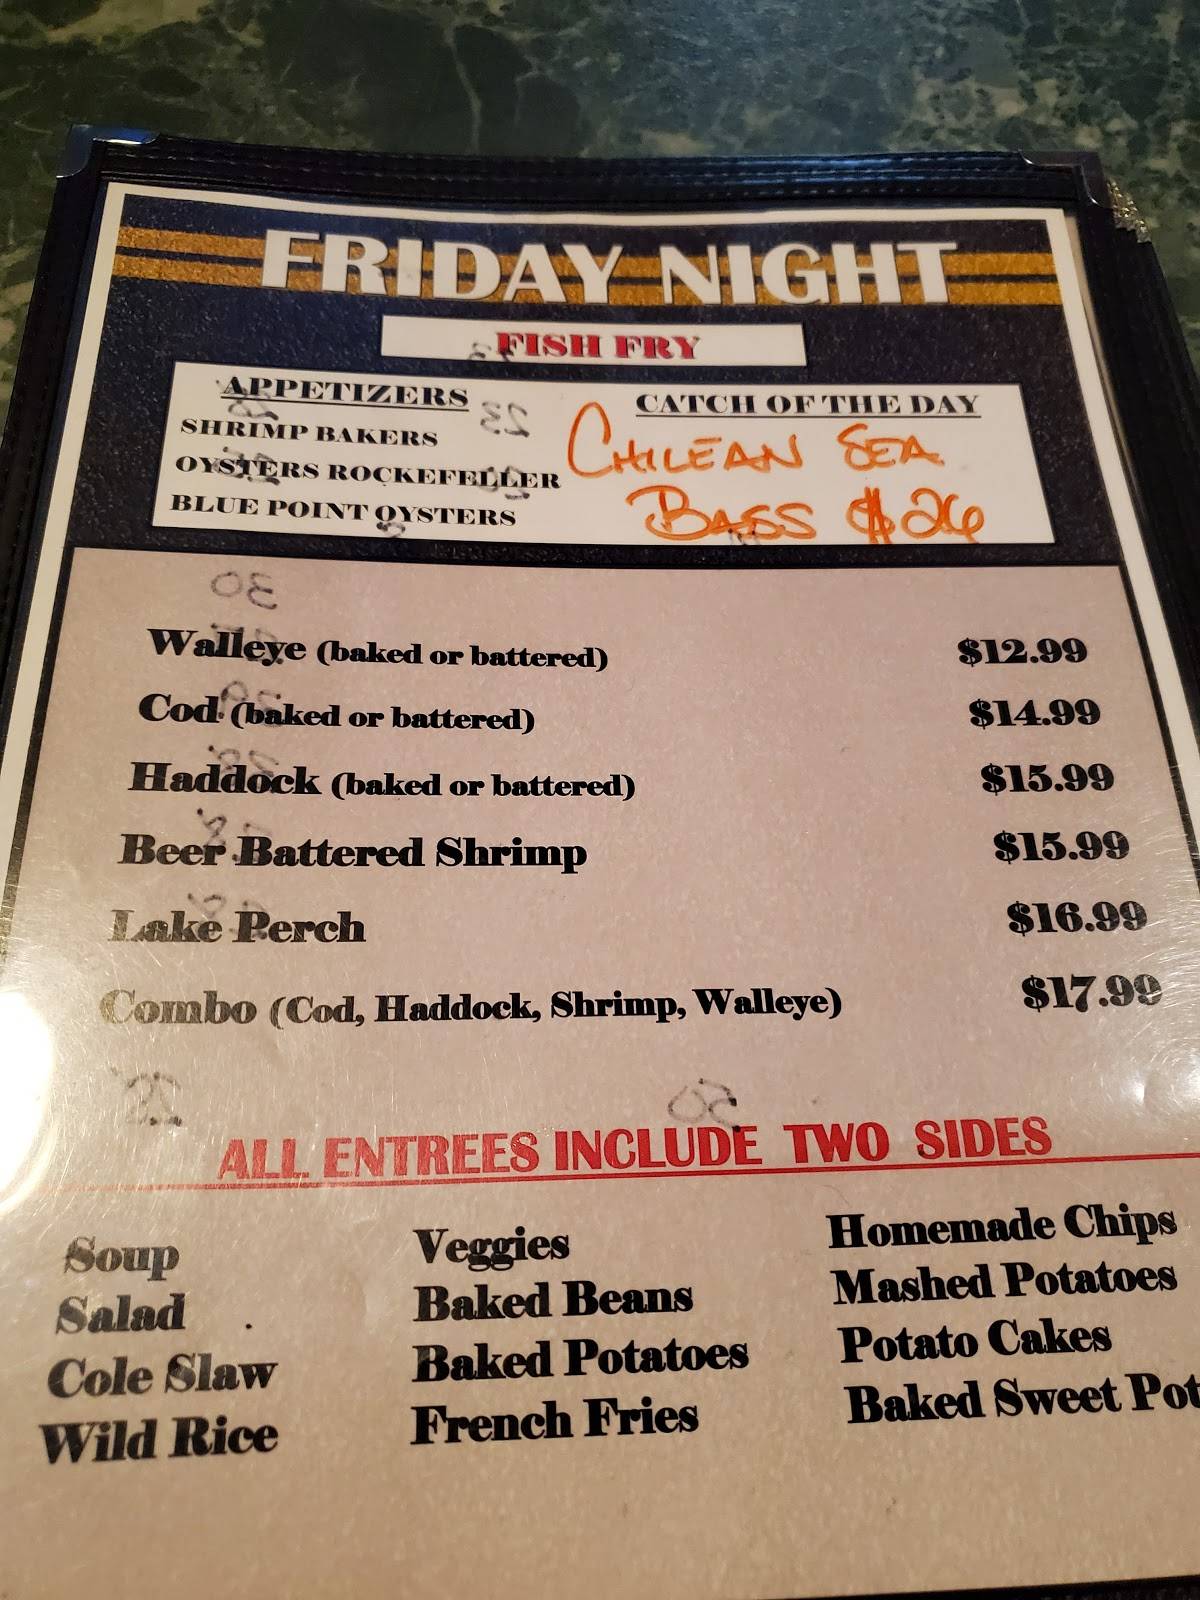 FRIDAY NIGHT
FISH FRY
APPETIZERS
SHRIMP BAKERS
OYSTERS ROCKEFELLER
BLUE POINT OYSTERS
CATCH OF THE DAY
CHILEAN SEA
BASS $26
Walleye (baked or battered) $12.99
Cod (baked or battered) $14.99
Haddock (baked or battered) $15.99
Beer Battered Shrimp $15.99
Lake Perch $16.99
Combo (Cod, Haddock, Shrimp, Walleye) $17.99
ALL ENTREES INCLUDE TWO SIDES
Soup
Salad
Cole Slaw
Wild Rice
Veggies
Baked Beans
Baked Potatoes
French Fries
Homemade Chips
Mashed Potatoes
Potato Cakes
Baked Sweet Pot